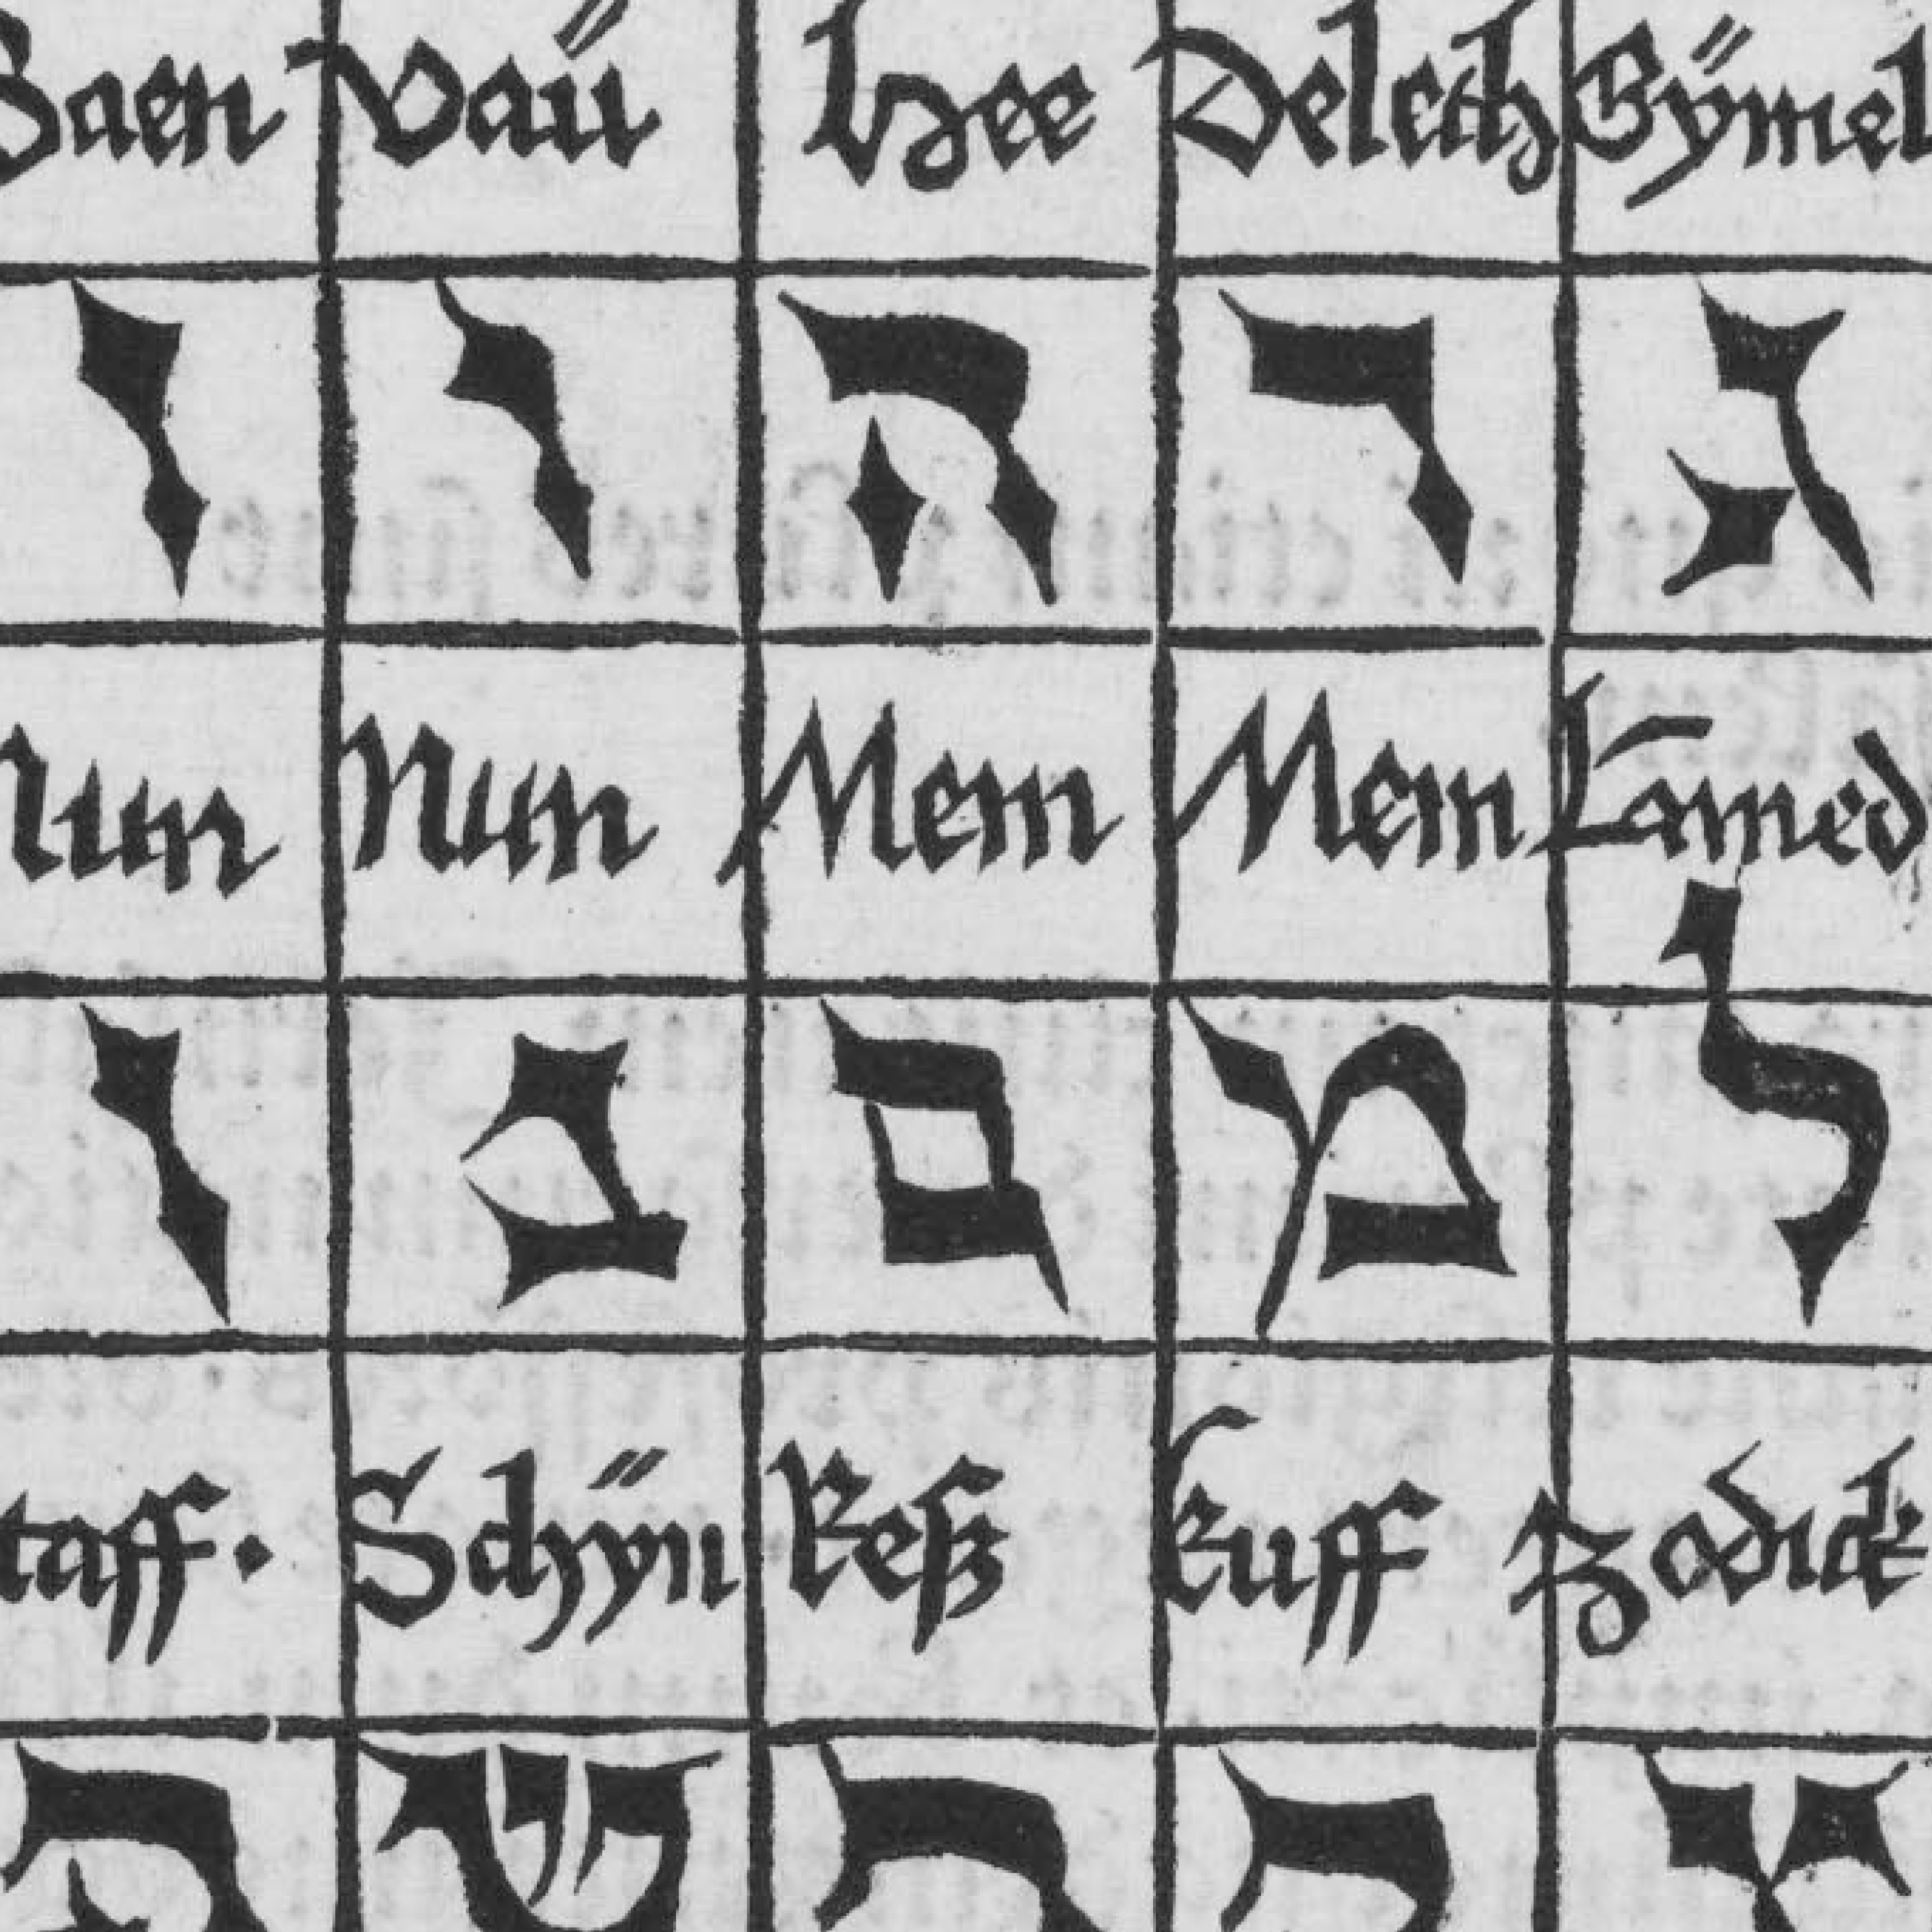 Saen Vaú hee Deleth Gÿmel
ז ו ה ד ג
Nun Nun Mem Mem Lamed
ן נ ם מ ל
taff. Schÿn Reß kuff Zodick
ת ש ר ק צ